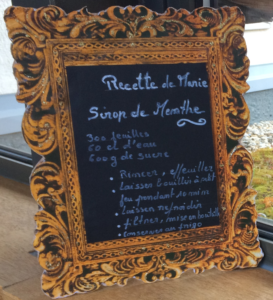 Recette de Marie
Sirop de Menthe
300 feuilles
60 cl d'eau
600g de sucre
• Rincer, effeuiller
• Laisser bouillir à petit
feu pendant 10 min
• Laisser refroidir
• filtrer, mise en bouteille
• conserver au frigo